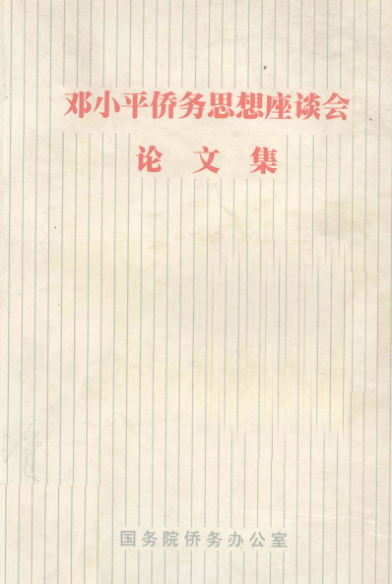 邓小平侨务思想座谈会
论文集
国务院侨务办公室